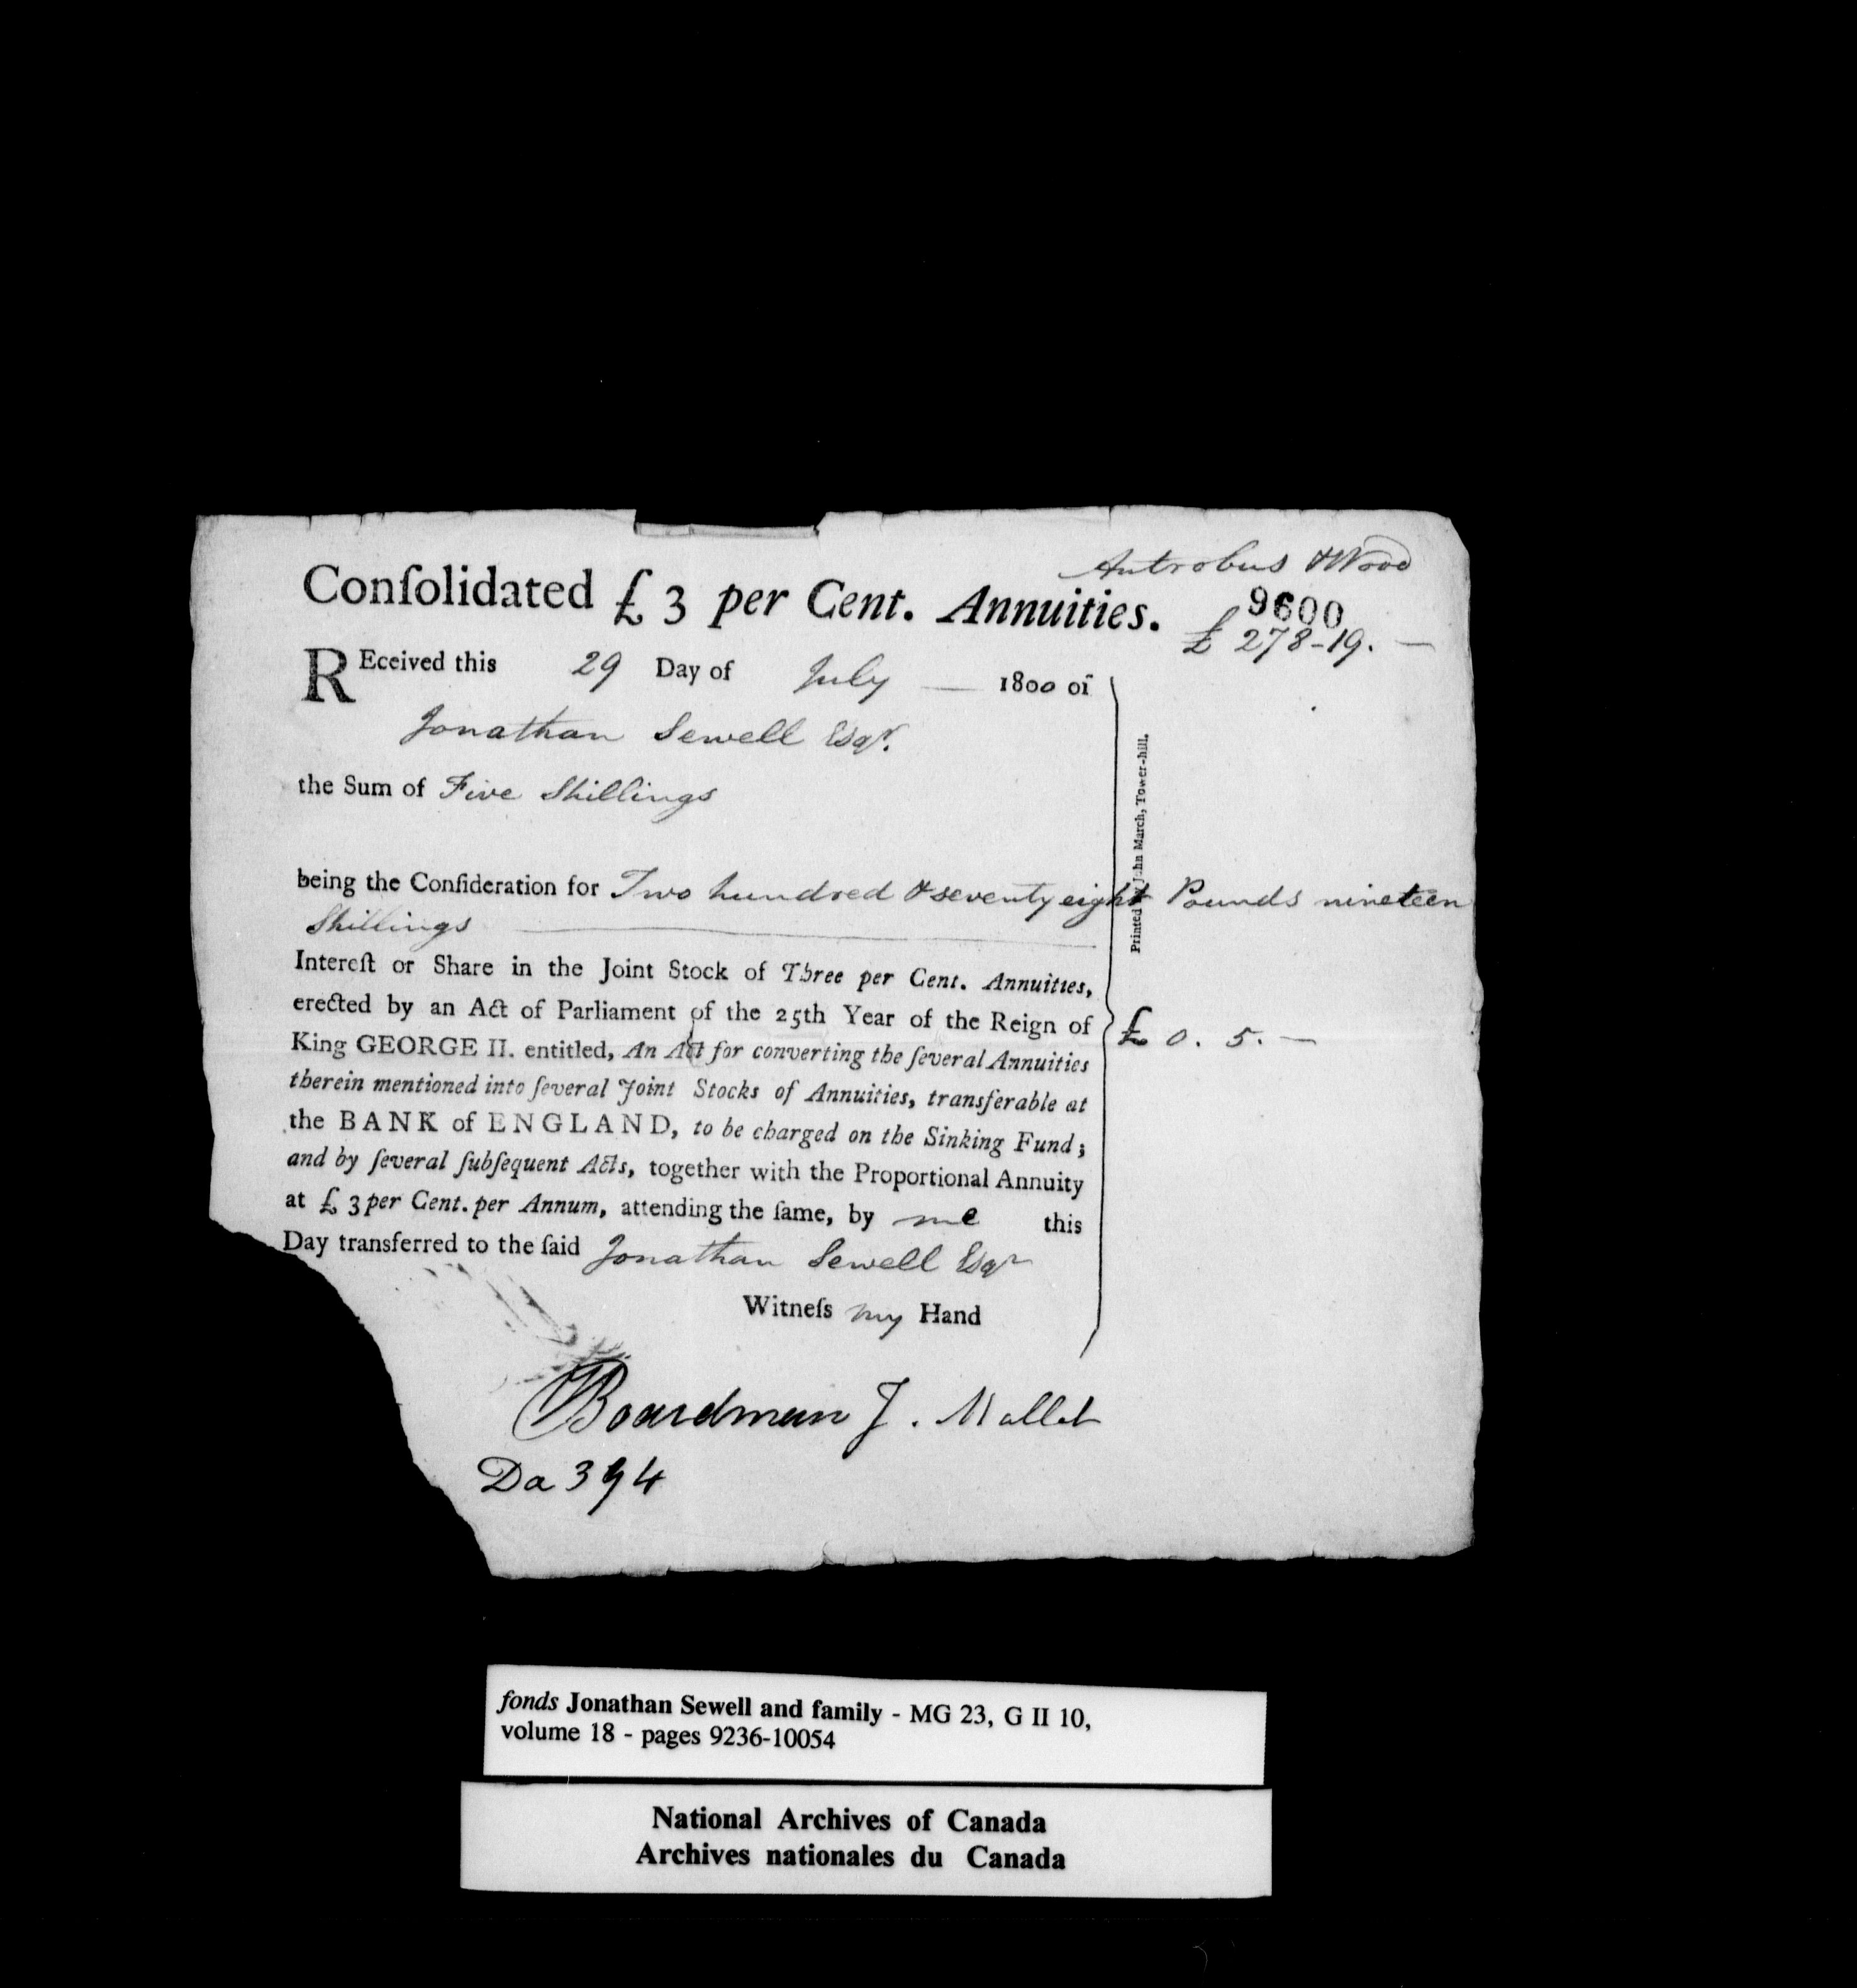 Antrobus & Wood
Conſolidated £ 3 per Cent. Annuities.
9600
£ 278-19. —
REceived this 29 Day of July — 1800 of
Jonathan Sewell Esqr.
the Sum of Five Shillings
Printed by John March, Tower-hill.
being the Conſideration for Two hundred & seventy eight Pounds nineteen
Shillings
Intereſt or Share in the Joint Stock of Three per Cent. Annuities,
erected by an Act of Parliament of the 25th Year of the Reign of
£ 0. 5. —
King GEORGE II. entitled, An Act for converting the ſeveral Annuities
therein mentioned into ſeveral Joint Stocks of Annuities, transferable at
the BANK of ENGLAND, to be charged on the Sinking Fund;
and by ſeveral ſubſequent Acts, together with the Proportional Annuity
at £ 3 per Cent. per Annum, attending the ſame, by me this
Day transferred to the ſaid Jonathan Sewell Esqr
Witneſs my Hand
Boardman J. Mallet
Da 394
fonds Jonathan Sewell and family - MG 23, G II 10,
volume 18 - pages 9236-10054
National Archives of Canada
Archives nationales du Canada